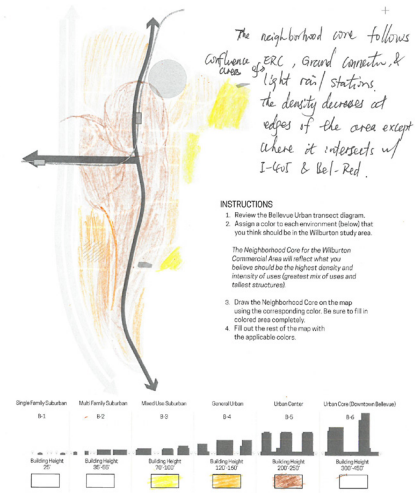 The neighborhood core follows
Confluence area of → ERC, Grand Connection, &
light rail stations.
The density decreases at
edges of the area except
where it intersects w/
I-405 & Bel-Red.
INSTRUCTIONS
1. Review the Bellevue Urban transect diagram.
2. Assign a color to each environment (below) that
you think should be in the Wilburton study area.
The Neighborhood Core for the Wilburton
Commercial Area will reflect what you
believe should be the highest density and
intensity of uses (greatest mix of uses and
tallest structures).
3. Draw the Neighborhood Core on the map
using the corresponding color. Be sure to fill in
colored area completely.
4. Fill out the rest of the map with
the applicable colors.
Single Family Suburban Multi Family Suburban Mixed Use Suburban General Urban Urban Center Urban Core (Downtown Bellevue)
B-1 B-2 B-3 B-4 B-5 B-6
Building Height Building Height Building Height Building Height Building Height Building Height
35' 70'-100' 120'-160' 200'-250' 300'-450'